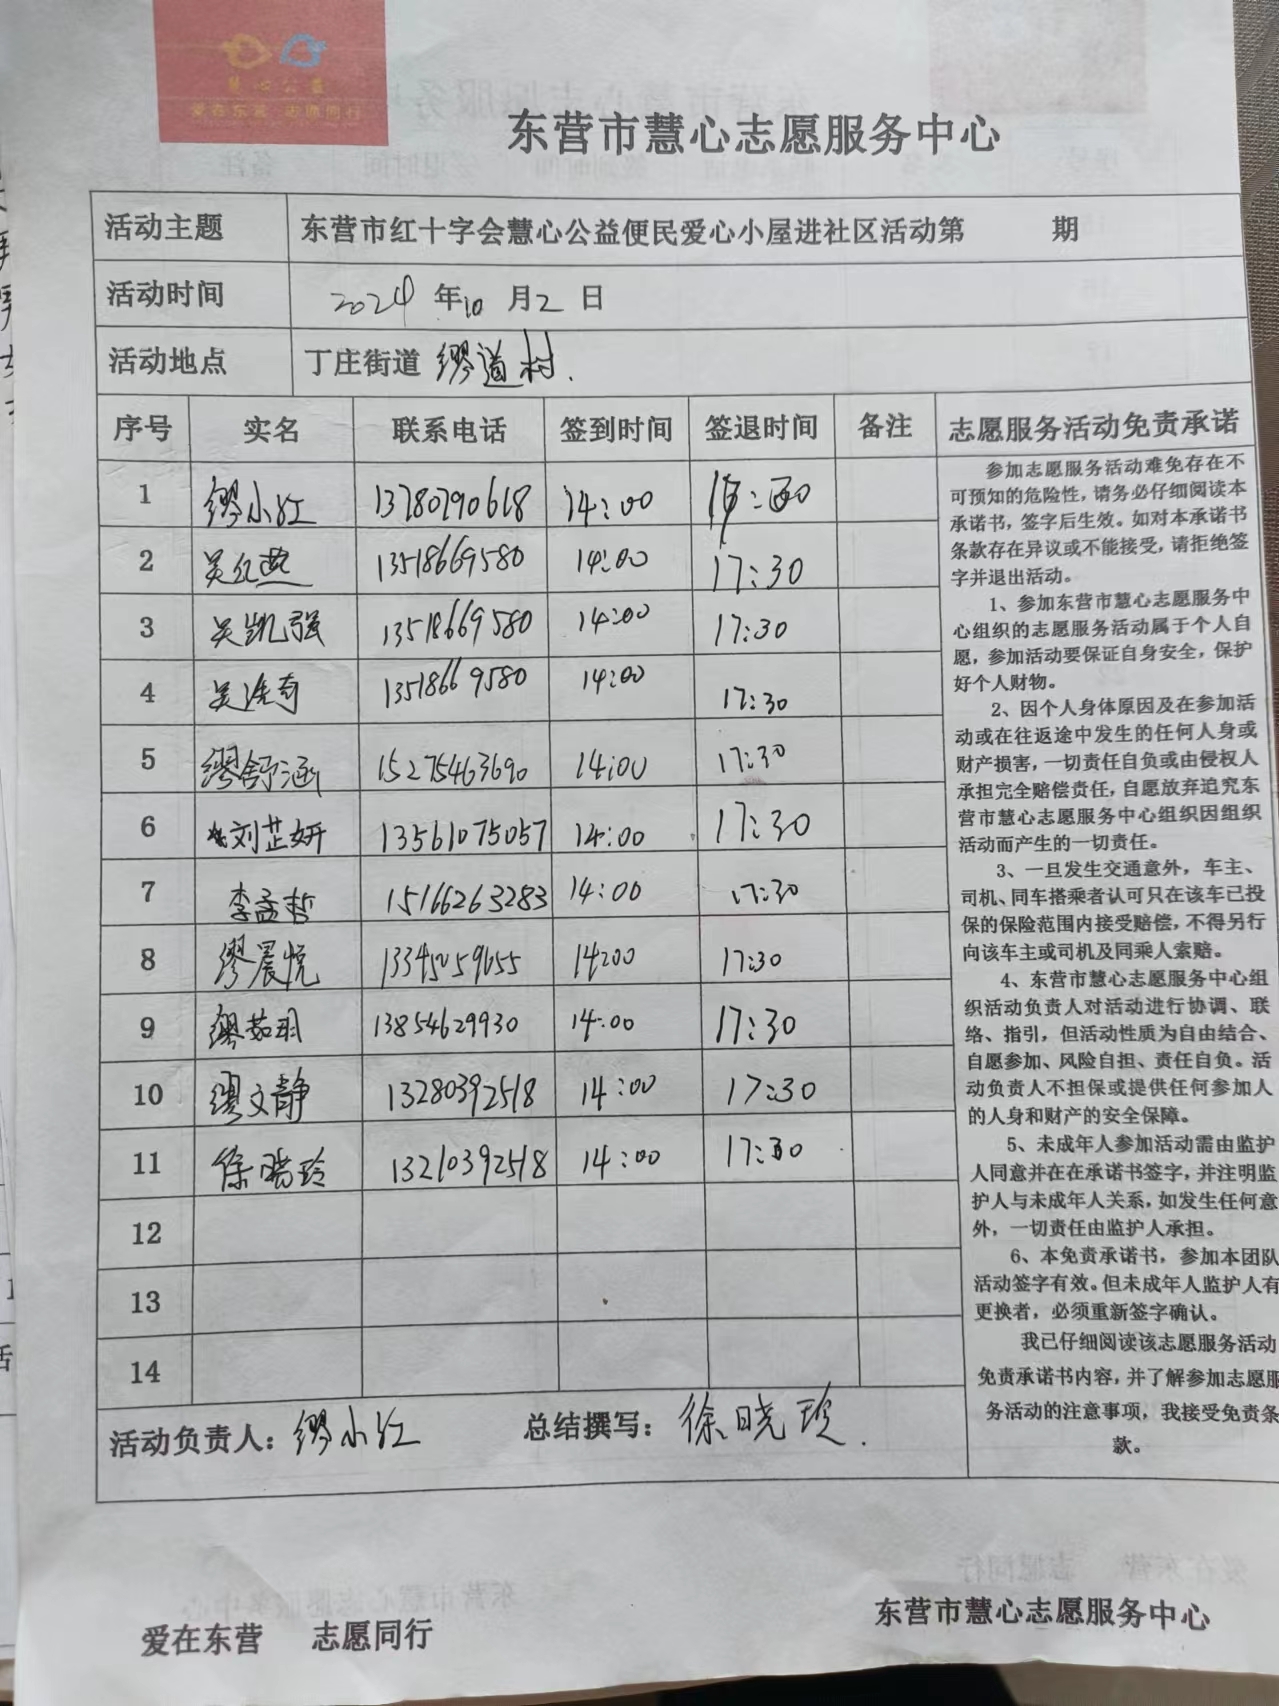 慧心公益
爱在东营 志愿同行
东营市慧心志愿服务中心
活动主题 东营市红十字会慧心公益便民爱心小屋进社区活动第 期
活动时间 2024 年 10 月 2 日
活动地点 丁庄街道 缪道村.
序号 实名 联系电话 签到时间 签退时间 备注
1 缪小红 13780790618 14:00
2 吴红燕 13518669580 14:00 17:30
3 吴凯强 13518669580 14:00 17:30
4 13518669580 14:00 17:30
5 缪舒涵 15275463690 14:00 17:30
6 刘芷妍 13561075057 14:00 17:30
7 李孟哲 15166263283 14:00 17:30
8 缪晨悦 14:00 17:30
9 缪茹羽 13854629930 14:00 17:30
10 缪文静 13280392518 14:00 17:30
11 徐晓玲 13210392518 14:00 17:30
12
13
14
活动负责人: 缪小红 总结撰写: 徐晓玲.
志愿服务活动免责承诺
参加志愿服务活动难免存在不
可预知的危险性,请务必仔细阅读本
承诺书,签字后生效。如对本承诺书
条款存在异议或不能接受,请拒绝签
字并退出活动。
1、参加东营市慧心志愿服务中
心组织的志愿服务活动属于个人自
愿,参加活动要保证自身安全,保护
好个人财物。
2、因个人身体原因及在参加活
动或在往返途中发生的任何人身或
财产损害,一切责任自负或由侵权人
承担完全赔偿责任,自愿放弃追究东
营市慧心志愿服务中心组织因组织
活动而产生的一切责任。
3、一旦发生交通意外,车主、
司机、同车搭乘者认可只在该车已投
保的保险范围内接受赔偿,不得另行
向该车主或司机及同乘人索赔。
4、东营市慧心志愿服务中心组
织活动负责人对活动进行协调、联
络、指引,但活动性质为自由结合、
自愿参加、风险自担、责任自负。活
动负责人不担保或提供任何参加人
的人身和财产的安全保障。
5、未成年人参加活动需由监护
人同意并在在承诺书签字,并注明监
护人与未成年人关系,如发生任何意
外,一切责任由监护人承担。
6、本免责承诺书,参加本团队
活动签字有效。但未成年人监护人有
更换者,必须重新签字确认。
我已仔细阅读该志愿服务活动
免责承诺书内容,并了解参加志愿服
务活动的注意事项,我接受免责条
款。
爱在东营 志愿同行
东营市慧心志愿服务中心